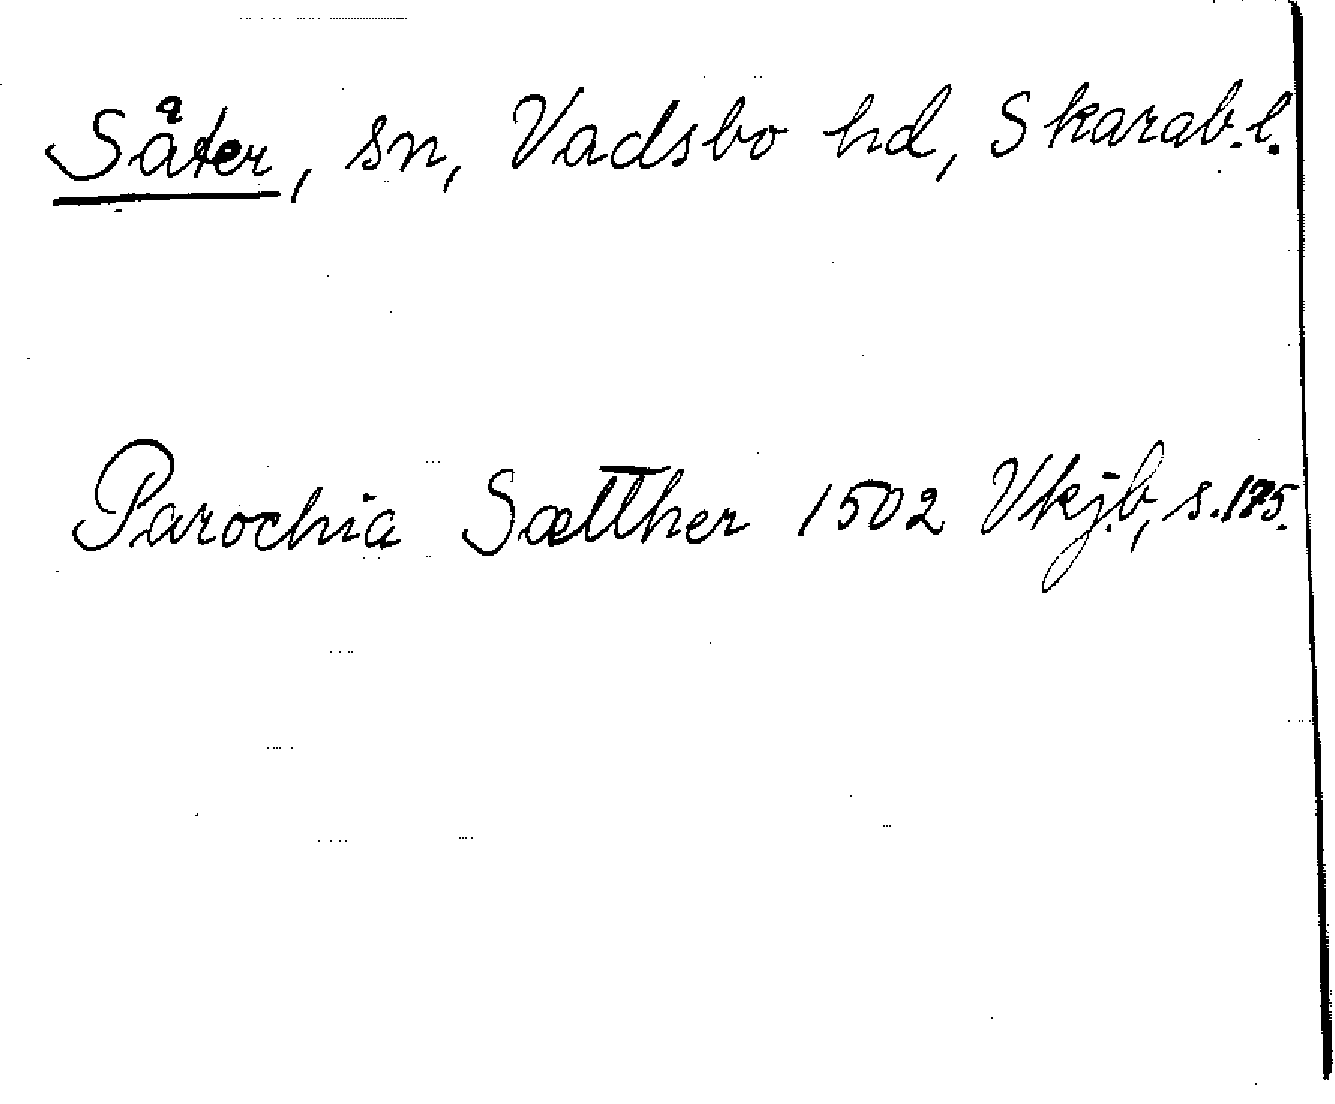 Såter, sn, Vadsbo hd, Skarab.l.
Parochia Sætther 1502 Vkj.b, s.175.